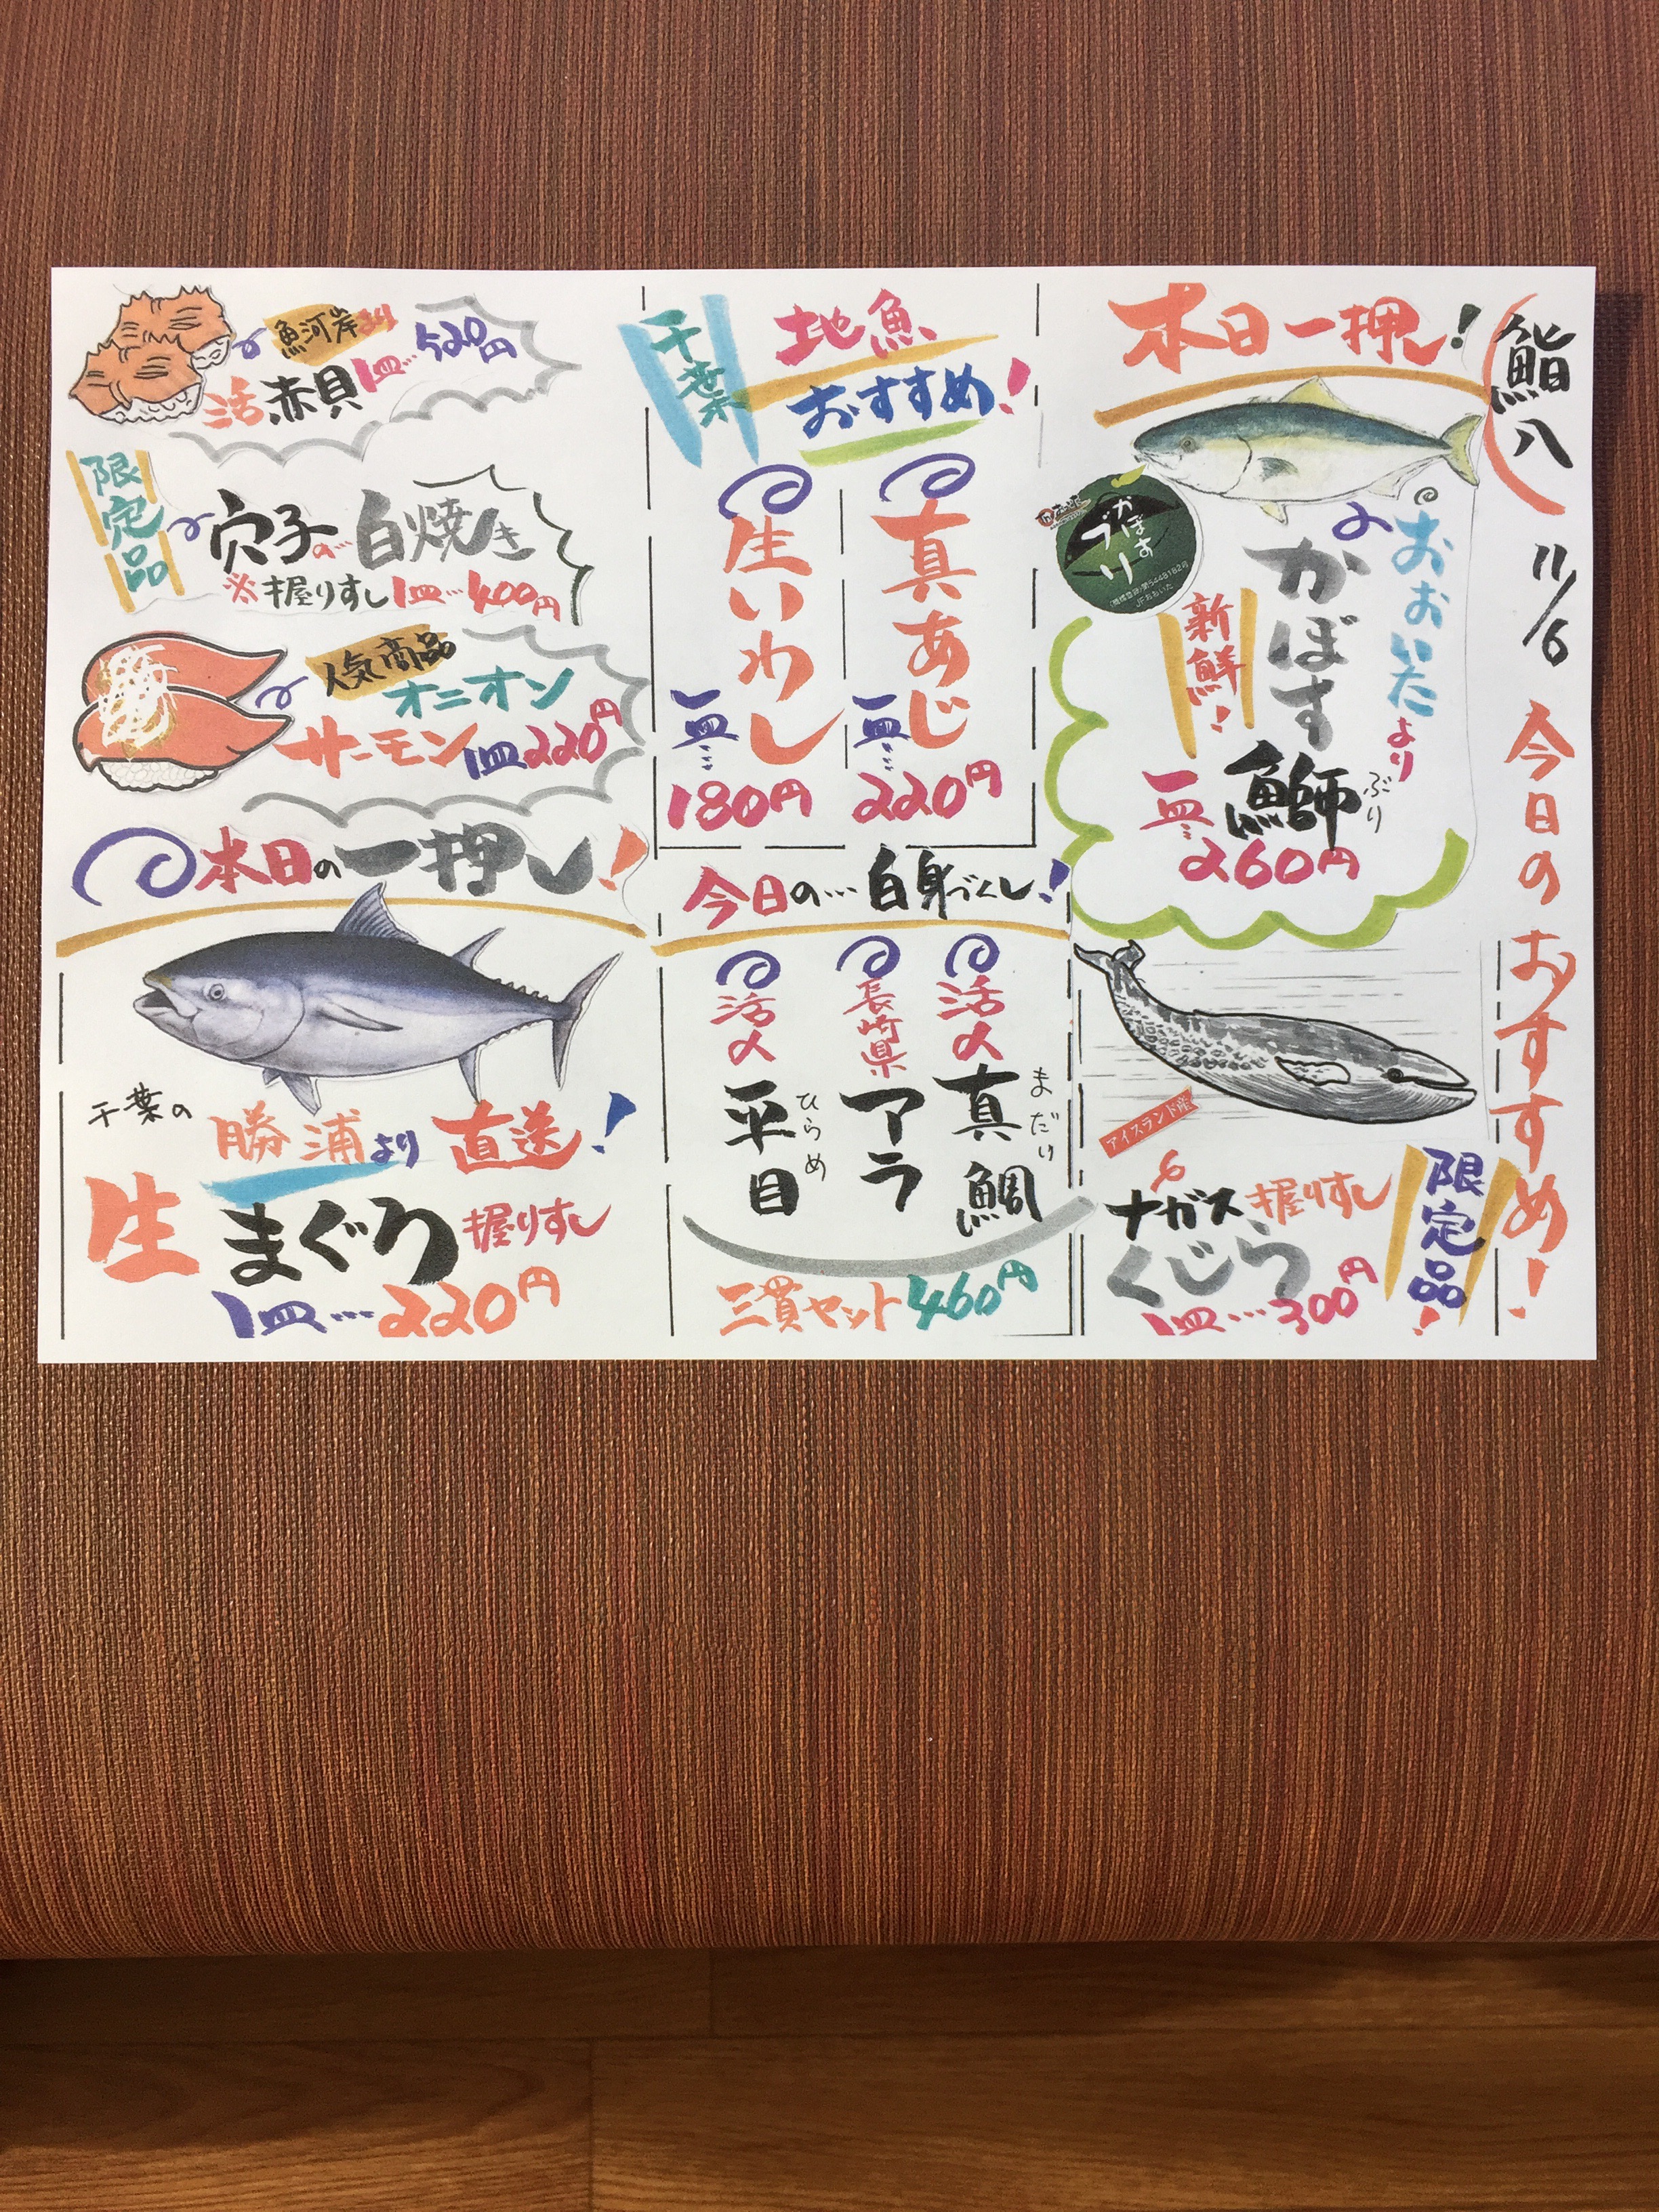 鮨八
11/6
今日のおすすめ!
本日一押し!
おおいたより
かぼす
鰤
ぶり
新鮮!
一皿…
260円
かぼす
ブリ
JFおおいた
アイスランド産
ナガス
くじら
握りずし
1皿…300円
限定品!
千葉
地魚
おすすめ!
真あじ
一皿…
220円
生いわし
一皿…
180円
今日の…白身づくし!
活〆
真鯛
まだい
長崎県
アラ
活〆
平目
ひらめ
三貫セット460円
魚河岸より
活赤貝1皿…520円
限定品
穴子の白焼き
※握りすし1皿…400円
人気商品
オニオン
サーモン1皿220円
本日の一押し!
千葉の
勝浦より直送!
生まぐろ握りすし
1皿…220円